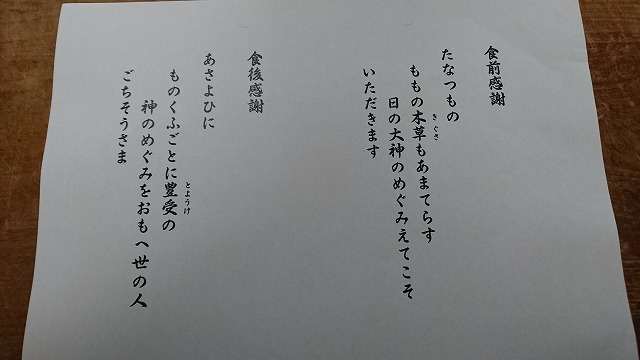 食前感謝
たなつもの
ももの木草もあまてらす
きぐさ
日の大神のめぐみえてこそ
いただきます
食後感謝
あさよひに
ものくふごとに豊受の
とようけ
神のめぐみをおもへ世の人
ごちそうさま